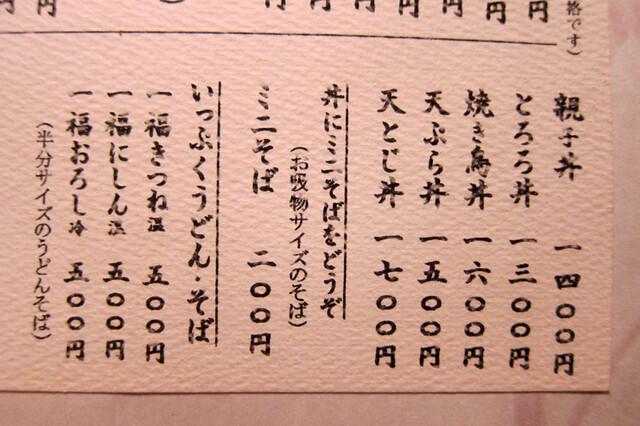 格です）
親子丼 一四〇〇円
とろろ丼 一三〇〇円
焼き鳥丼 一六〇〇円
天ぷら丼 一五〇〇円
天とじ丼 一七〇〇円
丼にミニそばをどうぞ
（お吸物サイズのそば）
ミニそば 二〇〇円
いっぷくうどん・そば
一福きつね温 五〇〇円
一福にしん温 五〇〇円
一福おろし冷 五〇〇円
（半分サイズのうどんそば）